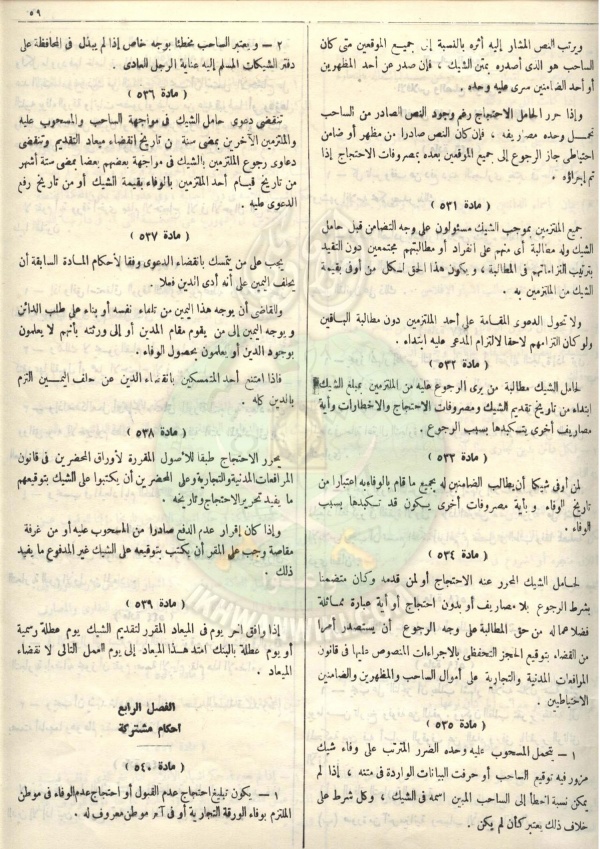 ٥٩
ويرتب النص المشار إليه أثره بالنسبة إلى جميع الموقعين متى كان
الساحب هو الذى أصدره بمتن الشيك ، فإن صدر عن أحد المظهرين
أو أحد الضامنين سرى عليه وحده .
وإذا حرر الحامل الاحتجاج رغم وجود النص الصادر من الساحب
تحمل وحده مصاريفه ، فإن كان النص صادرا من مظهر أو ضامن
احتياطى جاز الرجوع إلى جميع الموقعين بعده بمصروفات الاحتجاج إذا
تم إجراؤه .
( مادة ٥٣١ )
جميع الملتزمين بموجب الشيك مسئولون على وجه التضامن قبل حامل
الشيك وله مطالبة أى منهم على انفراد أو مطالبتهم مجتمعين دون التقيد
بترتيب التزاماتهم فى المطالبة ، ويكون هذا الحق لكل من أوفى بقيمة
الشيك من الملتزمين به .
ولا تحول الدعوى المقامة على أحد الملتزمين دون مطالبة الباقين
ولو كان التزامهم لاحقا لالتزام المدعو عليه ابتداء .
( مادة ٥٣٢ )
لحامل الشيك مطالبة من يرى الرجوع عليه من الملتزمين بمبلغ الشيك
ابتداء من تاريخ تقديم الشيك ومصروفات الاحتجاج والاخطارات وأية
مصاريف أخرى يتكبدها بسبب الرجوع .
( مادة ٥٣٣ )
لمن أوفى شيكا أن يطالب الضامنين له بجميع ما قام بالوفاء به اعتبارا من
تاريخ الوفاء وبأية مصروفات أخرى يكون قد تكبدها بسبب
الوفاء .
( مادة ٥٣٤ )
لحامل الشيك المحرر عنه الاحتجاج أو لمن قدمه وكان متضمنا
بشرط الرجوع بلا مصاريف أو بدون احتجاج أو أية عبارة مماثلة
فضلا عما له من حق المطالبة على وجه الرجوع أن يستصدر أمرا
من القضاء بتوقيع الحجز التحفظى بالاجراءات المنصوص عليها فى قانون
المرافعات المدنية والتجارية على أموال الساحب والمظهرين والضامنين
الاحتياطيين .
( مادة ٥٣٥ )
١ – يتحمل المسحوب عليه وحده الضرر المترتب على وفاء شيك
مزور فيه توقيع الساحب أو حرفت البيانات الواردة فى متنه ، إذا لم
يمكن نسبة الخطأ إلى الساحب المبين اسمه فى الشيك ، وكل شرط على
خلاف ذلك يعتبر كأن لم يكن .
٢ – ويعتبر الساحب مخطئا بوجه خاص إذا لم يبذل فى المحافظة على
دفتر الشيكات المسلم إليه عناية الرجل العادى .
( مادة ٥٣٦ )
تنقضى دعوى حامل الشيك فى مواجهة الساحب والمسحوب عليه
والملتزمين الآخرين بمضى سنة من تاريخ انقضاء ميعاد التقديم وتنقضى
دعاوى رجوع الملتزمين بالشيك فى مواجهة بعضهم بعضا بمضى ستة أشهر
من تاريخ قيام أحد الملتزمين بالوفاء بقيمة الشيك أو من تاريخ رفع
الدعوى عليه .
( مادة ٥٣٧ )
يجب على من يتمسك بانقضاء الدعوى وفقا لأحكام المادة السابقة أن
يحلف اليمين على أنه أدى الدين فعلا
وللقاضى أن يوجه هذا اليمين من تلقاء نفسه أو بناء على طلب الدائن
ويوجه اليمين إلى من يقوم مقام المدين أو إلى ورثته بأنهم لا يعلمون
بوجود الدين أو يعلمون بحصول الوفاء .
فاذا امتنع أحد المتمسكين بانقضاء الدين عن حلف اليمين التزم
بالدين كله .
( مادة ٥٣٨ )
يحرر الاحتجاج طبقا للأصول المقررة لأوراق المحضرين فى قانون
المرافعات المدنية والتجارية وعلى المحضرين أن يكتبوا على الشيك بتوقيعهم
ما يفيد تحرير الاحتجاج وتاريخه .
وإذا كان إقرار عدم الدفع صادرا من المسحوب عليه أو من غرفة
مقاصة وجب على المقر أن يكتب بتوقيعه على الشيك غير المدفوع ما يفيد
ذلك .
( مادة ٥٣٩ )
إذا وافق آخر يوم فى الميعاد المقرر لتقديم الشيك يوم عطلة رسمية
أو يوم عطلة بالبنك امتد هذا الميعاد إلى يوم العمل التالى لانقضاء
الميعاد .
الفصل الرابع
أحكام مشتركة
( مادة ٥٤٠ )
١ – يكون تبليغ احتجاج عدم القبول أو احتجاج عدم الوفاء فى موطن
الملتزم بوفاء الورقة التجارية أو فى آخر موطن معروف له .